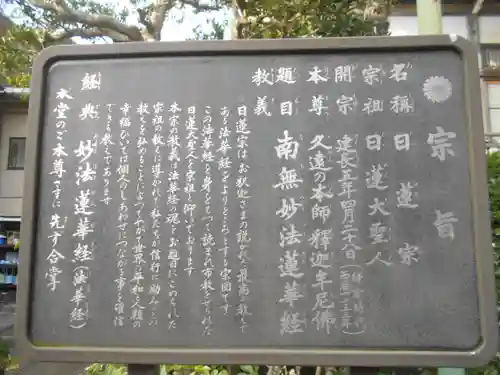 宗旨
名称 日蓮宗
宗祖 日蓮大聖人
開宗 建長五年四月二十八日（鎌倉時代 西暦一二五三年）
本尊 久遠の本師釋迦牟尼佛
題目 南無妙法蓮華経
教義
日蓮宗は、お釈迦さまの説かれた最高の教えで
ある法華経をよりどころとする宗団です
この法華経を身をもって読まれ布教なされた
日蓮大聖人を宗祖と仰いでおります
本宗の教義は法華経の魂とお題目にこめられた
宗祖の教えに導かれ、私たちが信行に励み、この
教えを弘めることによって、やがて世界の平和と人類の
幸福、ひいては個人のしあわせにつながる事を確信
できる教えであります
経典 妙法蓮華経（法華経）
本堂のご本尊さまに先ず合掌